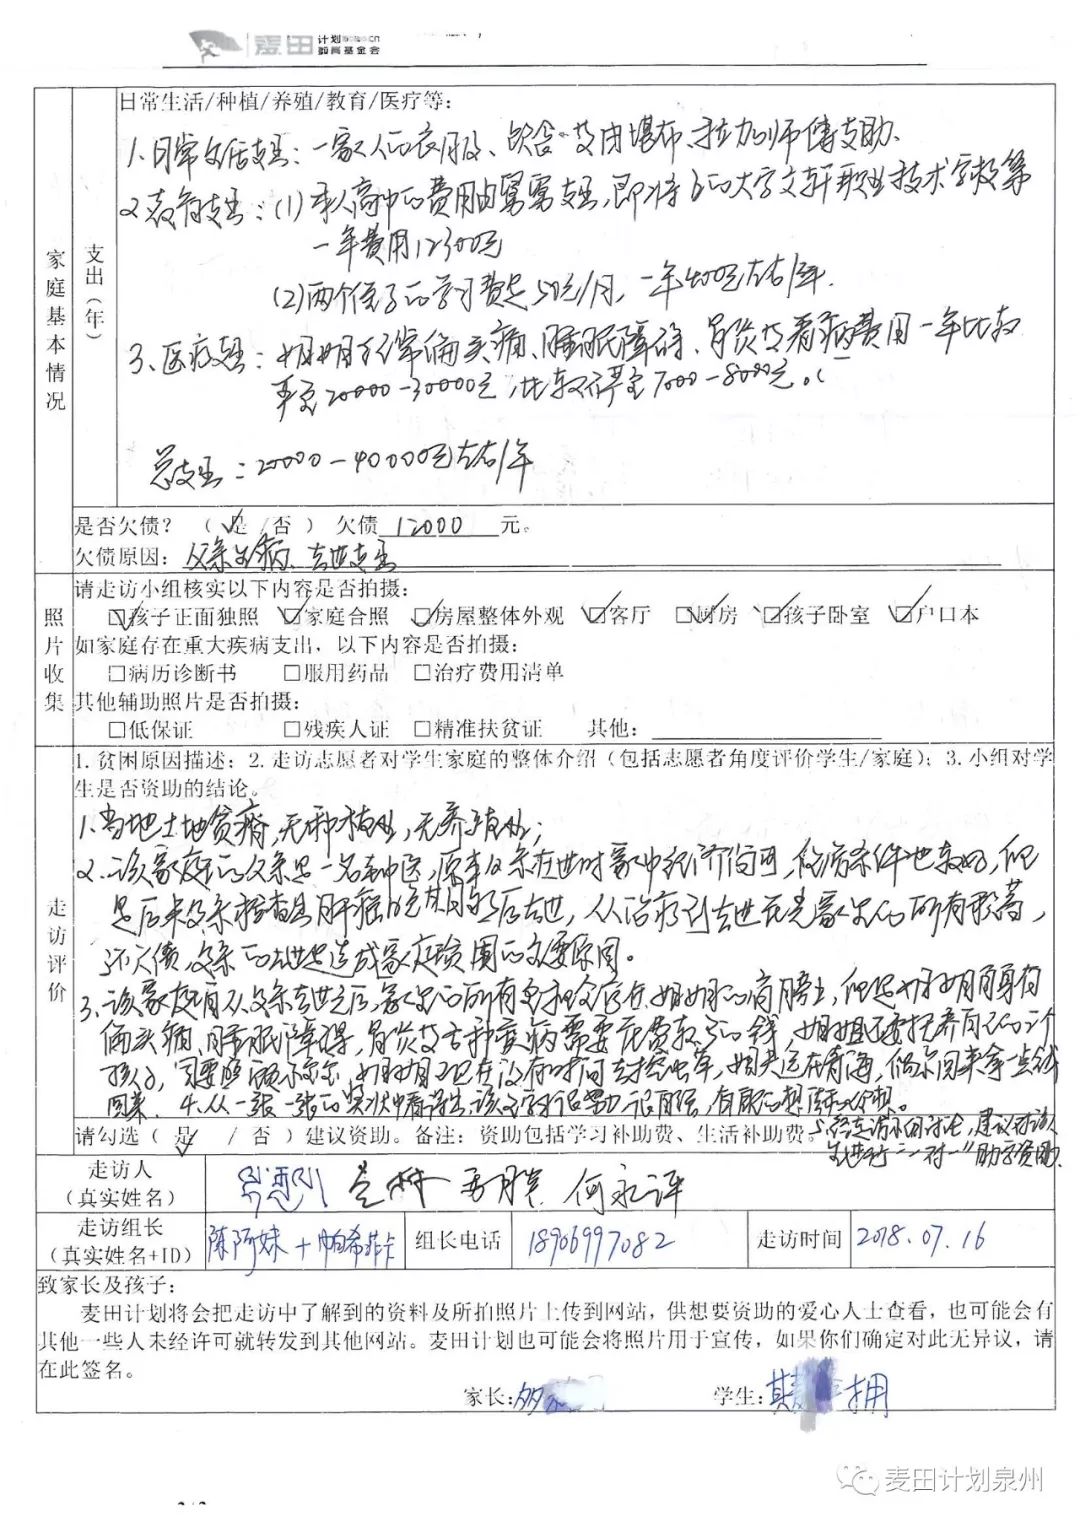 麦田 计划
教育基金会
日常生活/种植/养殖/教育/医疗等：
1、日常生活支出：一家人的衣服、饮食、及由堪布、拉加师傅支助、
2、教育支出：(1) 本人高中的费用由舅舅支出，即将上的大学文轩职业技术学校等
一年费用12300元
(2) 两个侄子的学习费是50元/月，一年400元左右/年.
3、医疗支出：姐姐的经常偏头痛、睡眠障碍、胃炎及看病费用一年比较
严重20000-30000元，比较轻至7000-8000元。
总支出：20000-40000元左右/年
家庭基本情况
支出（年）
是否欠债？ （ 是 / 否 ） 欠债 12000 元。
欠债原因：父亲生病、去世支出
照片收集
请走访小组核实以下内容是否拍摄：
☑孩子正面独照 ☑家庭合照 ☑房屋整体外观 ☑客厅 ☑厨房 ☑孩子卧室 ☑户口本
如家庭存在重大疾病支出，以下内容是否拍摄：
□病历诊断书 □服用药品 □治疗费用清单
其他辅助照片是否拍摄：
□低保证 □残疾人证 □精准扶贫证 其他：
走访评价
1. 贫困原因描述；2. 走访志愿者对学生家庭的整体介绍（包括志愿者角度评价学生/家庭）；3. 小组对学
生是否资助的结论。
1、当地土地贫瘠，无种植业，无养殖业；
2、该家庭的父亲是一名中医，原本父亲在世时家中经济尚可，住房条件也较好，但
是后来父亲检查出肝癌晚期后去世，从治疗到去世花光家里的所有积蓄，
还欠债，父亲的去世是造成家庭贫困的主要原因。
3、该家庭自从父亲去世之后，家里的所有重担全落在姐姐的肩膀上，但是姐姐自身有
偏头痛、睡眠障碍，胃炎及各种疾病需要花费较多的钱，姐姐还要抚养自己的2个
孩子，需要照顾，姐姐现在没有时间去挖虫草，姐夫远在青海，偶尔回来拿一点钱
回来. 4、从一张一张的奖状中看得出，该学生很努力很自强，有自己的想法和梦想。
请勾选（ 是 / 否 ）建议资助。备注：资助包括学习补助费、生活补助费。
5、经走访小组讨论，建议对该
生进行"一对一"助学资助
走访人
（真实姓名）
何永评
走访组长
（真实姓名+ID）
陈阿妹 + 帕希菲卡
组长电话
18906997082
走访时间
2018.07.16
致家长及孩子：
麦田计划将会把走访中了解到的资料及所拍照片上传到网站，供想要资助的爱心人士查看，也可能会有
其他一些人未经许可就转发到其他网站。麦田计划也可能会将照片用于宣传，如果你们确定对此无异议，请
在此签名。
家长：
学生：
麦田计划泉州